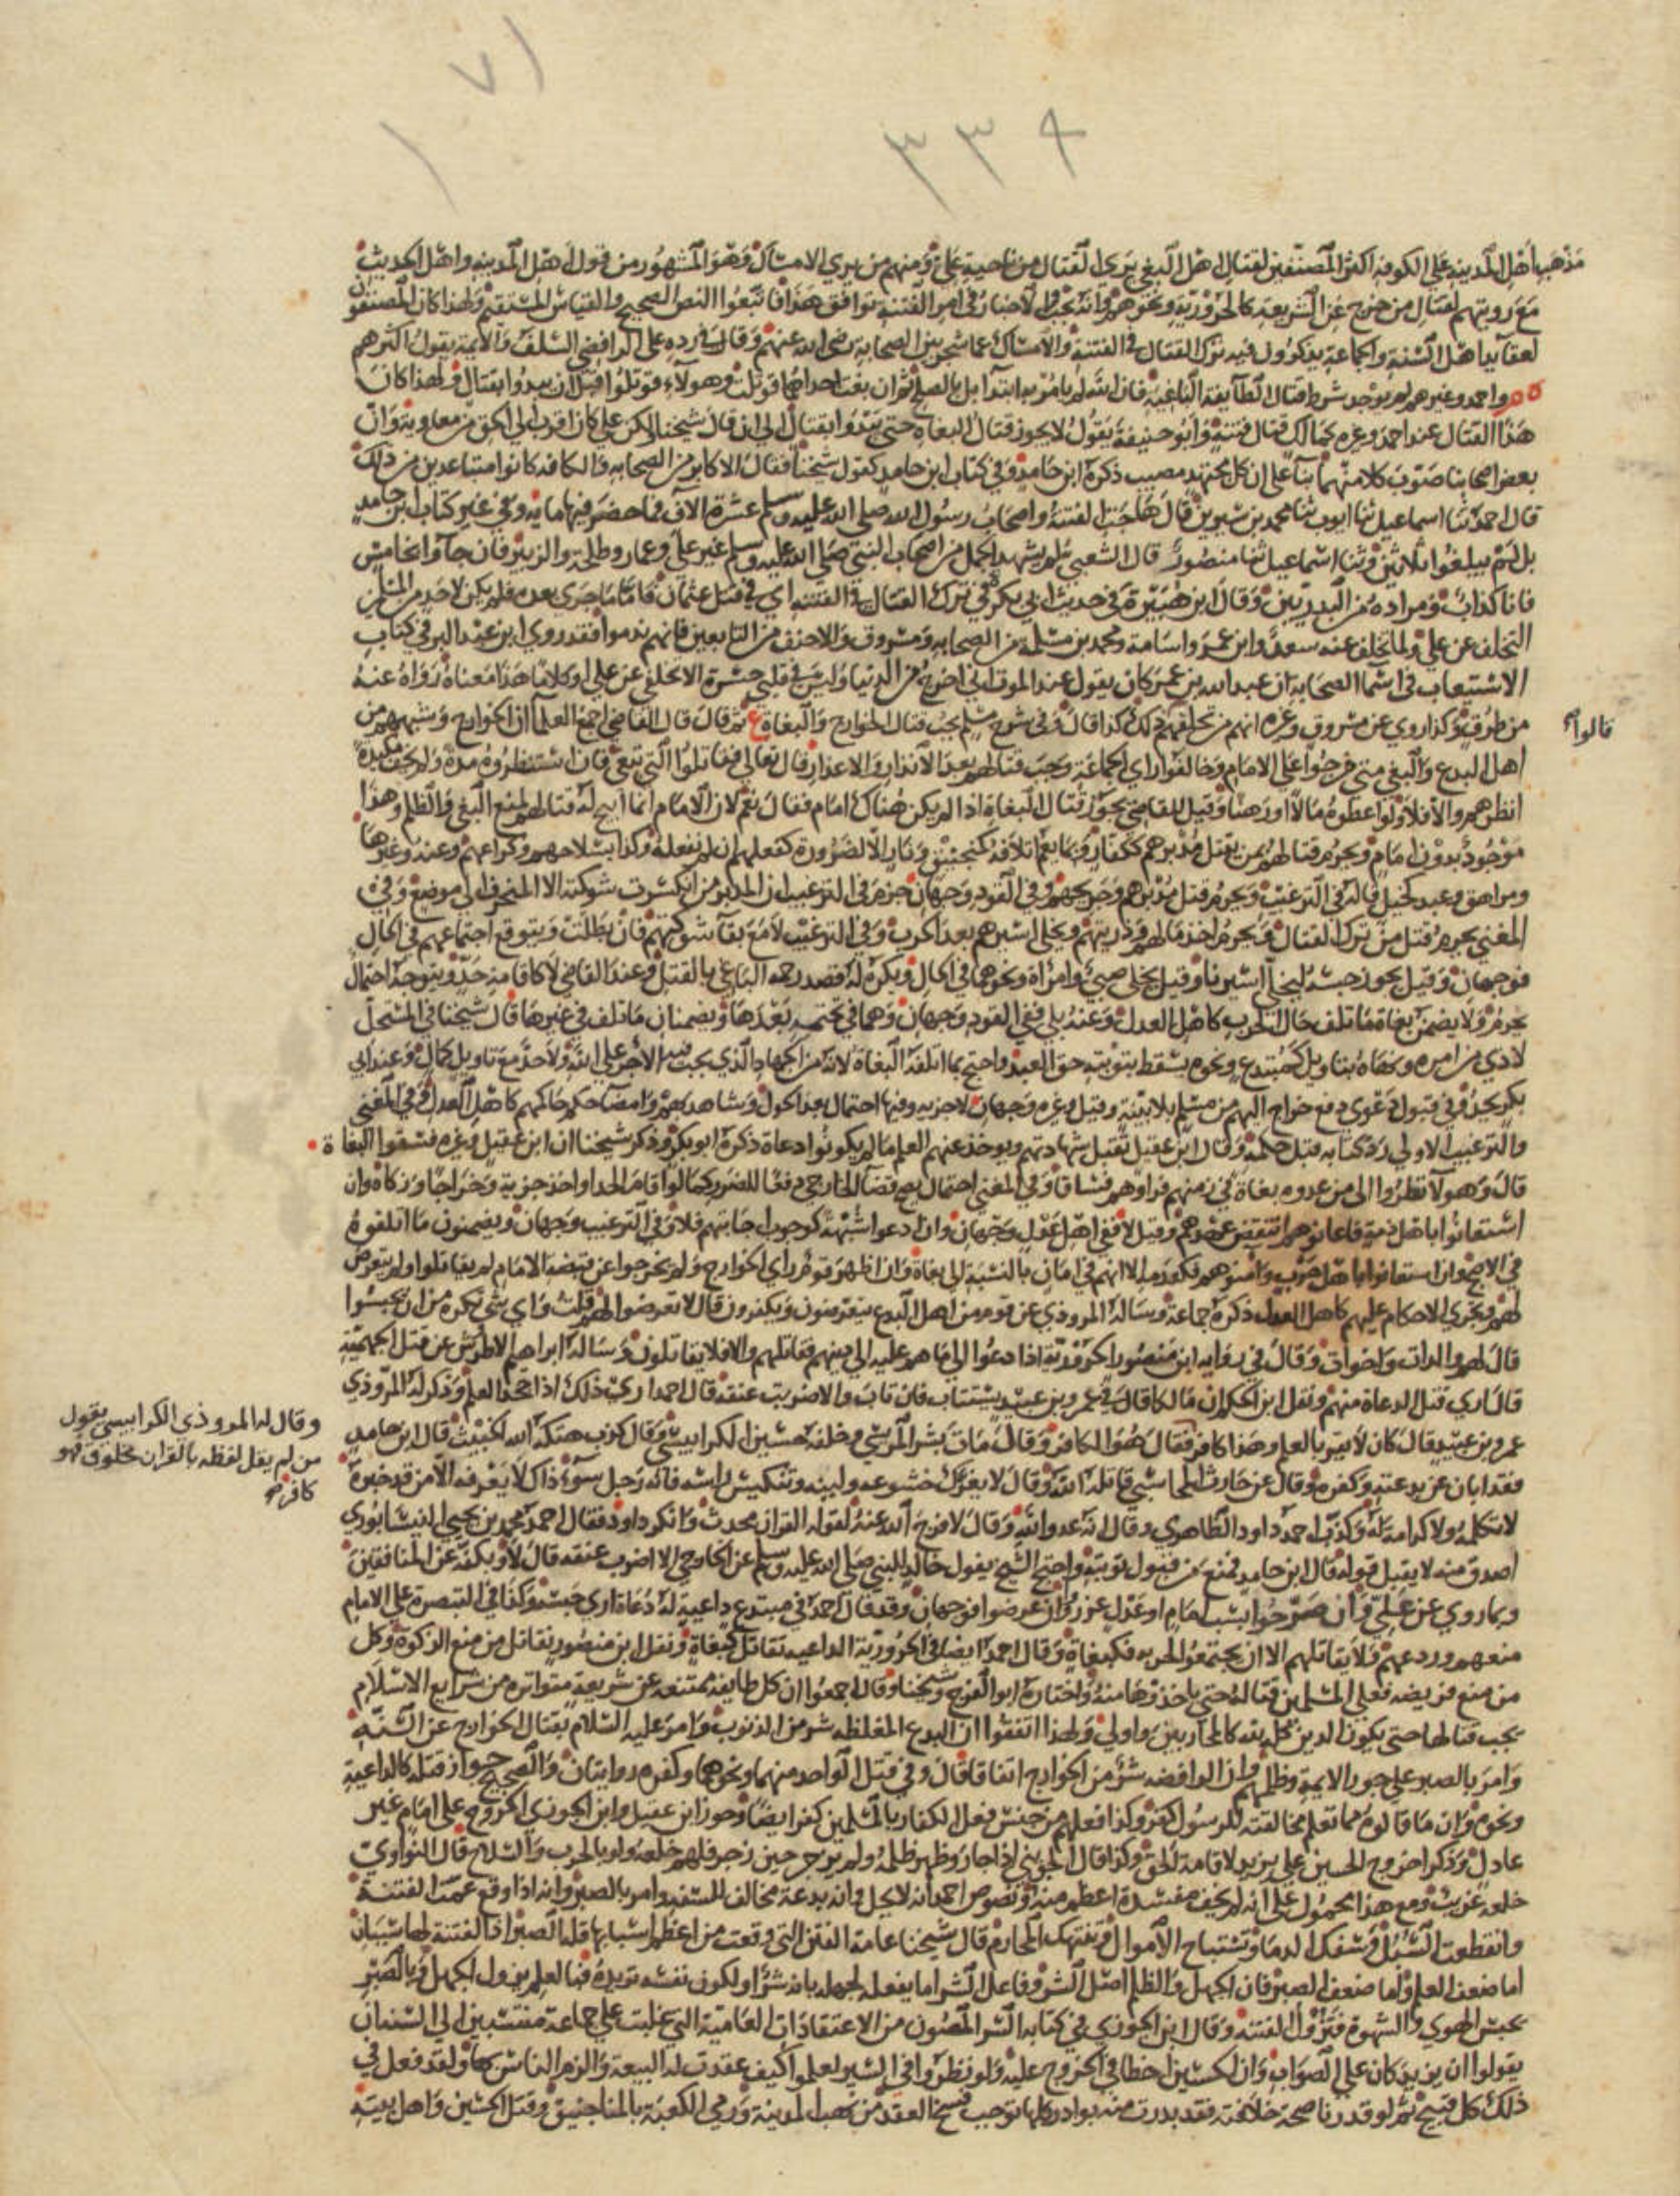 ٧١
٣٣٤
مذهب أهل المدينة على الكوفة اكثر المصنفين لقتال اهل البغي يرى القتال من ناحية علي ومنهم من يري الامساك وهو المشهور من قول اهل المدينة واهل الحديث
مع رويتهم لقتال من خرج عن الشريعة كالحرورية ونحوهم وانه يجب والاخبار في امر الفتنة توافق هذا فاتبعوا النص الصحيح والقياس المستقيم ولهذا كان المصنفون
لعقايد اهل السنة والجماعة يذكرون فيه ترك القتال في الفتنة والامساك عما شجر بين الصحابة رضي الله عنهم وقال في رده على الرافضي السلف والايمة يقول اكثرهم
واحمد وغيرهم لم يوجد شرط قتال الطايفة الباغية فان الله لم يامر به ابتدا بل بالصلح ثم ان بغت احداهما قوتلت وهولاء قوتلوا قبل ان يبدوا بقتال ولهذا كان
هذا القتال عند احمد وغيره كمالك قتال فتنة وابو حنيفة يقول لا يجوز قتال البغاة حتى يبدوا بقتال الى ان قال شيخنا لكن علي كان اقرب الي الحق من معاوية وان
بعض اصحابنا صوب كلا منهما بنا على ان كل مجتهد مصيب ذكره ابن حامد وفي كتاب ابن حامد كقول شيخنا فقال الاكابر من الصحابة والكافة كانوا متباعدين من ذلك
قال احمد ثنا اسماعيل ثنا ايوب ثنا محمد بن سيرين قال هاجت الفتنة واصحاب رسول الله صلى الله عليه وسلم عشرة الاف فما حضر فيها مايه وفي غير كتاب ابن حامد
بل لم يبلغوا ثلاثين وثنا اسماعيل ثنا منصور قال الشعبي لم يشهد الجمل من اصحاب النبي صلى الله عليه وسلم غير علي وعمار وطلحة والزبير فان جاوا بخامس
فانا كذاب ومراده من البدريين وقال ابن هبيرة في حديث ابي بكرة في ترك القتال في الفتنة اي في قتل عثمان فاما ما جرى بعده فلم يكن لاحد من المسلمين
التخلف عن علي ولما تخلف عنه سعد وابن عمر واسامة ومحمد بن مسلمة من الصحابة ومسروق والاحنف من التابعين فانهم ندموا فقد روي ابن عبد البر في كتاب
الاستيعاب في اسما الصحابة ان عبد الله بن عمر كان يقول عند الموت اني اخرج من الدنيا وليس في قلبي حسرة الا تخلفي عن علي او كلاما هذا معناه رواه عنه
من طرق وكذا روي عن مسروق وغيره انهم من تخلفهم ذلك كذا قال وفي شرح مسلم يجب قتال الخوارج والبغاة ثم قال قال القاضي اجمع العلما ان الخوارج وشبههم من
قالوا
اهل البدع والبغي متى خرجوا على الامام وخالفوا راي الجماعة وجب قتالهم بعد الانذار والاعذار قال تعالى فقاتلوا التي تبغي فان استنظروه مدة ولم يخف مكيدة
انظرهم والا فلا ولو اعطوه مالا او رهنا وقيل للقاضي يجوز قتال البغاة اذا لم يكن هناك امام فقال نعم لان الامام انما ابيح له قتالهم لمنع البغي والظلم وهذا
موجود بدون امام ويحرم قتالهم بمن يقتل مدبرهم ككفار وبما يعم اتلافه كمنجنيق ونار الا لضرورة كفعلهم ان لم نفعله وكذا بسلاحهم وكراعهم وعنه وغيرها
ومراهق وعبد كخيل قاله في الترغيب ويحرم قتل مدبرهم وجريحهم وفي القود وجهان جزم في الترغيب ان المدبر من انكسرت شوكته الا المتحرف الى موضع وفي
المغني يحرم قتل من ترك القتال ويحرم اخذ مالهم وذريتهم ويخلى اسيرهم بعد الحرب وفي الترغيب لا مع بقا شوكتهم فان بطلت ويتوقع اجتماعهم في الحال
فوجهان وقيل يجوز حبسه ليخلى اسيرنا وقيل يخلى صبي وامراة ونحوهما في الحال ويكره له قصد رحمه الباغي بالقتل وعند القاضي لا كاقامة حد ويتوجه احتمال
يحرم ولا يضمن بغاة ما تلف حال الحرب كاهل العدل وعنه بلى ففي القود وجهان وهما في تحتمه بعدها ويضمنان ما تلف في غيرها قال شيخنا في المستحل
لاذي من امره ونهاه بتاويل كمبتدع ونحوه يسقط بتوبته حق العبد واحتج بما اتلفه البغاة لانه من الجهاد الذي يجب فيه الاجر على الله ولاحد مع تاويل كمال وعند ابي
بكر يحد وفي قبول دعوي دفع خراج اليهم من مسلم بلا بينة وقيل وغيره وجهان لا جزية وفيها احتمال بعد الحول وشاهدهم وامضا حكم حاكمهم كاهل العدل وفي المغني
والترغيب الاولى رد كتابه قبل حكمه وقال ابن عقيل تقبل شهادتهم ويوخذ عنهم العلم ما لم يكونوا دعاة ذكره ابو بكر وذكر شيخنا ان ابن عقيل وغيره فسقوا البغاة
قال وهولا نظروا الى من عدوه بغاة في زمنهم فراوهم فساقا وفي المغني احتمال يصح قضا الخارجي دفعا للضرر كما لو اقام الحد او اخذ جزية وخراجا وزكاة وان
استعانوا باهل ذمة فاعانوهم انتقض عهدهم وقيل لا ففي اهل عدل وجهان وان ادعوا شبهة كوجوب اجابتهم فلا وفي الترغيب وجهان ويضمنون ما اتلفوه
في الاصح وان استعانوا باهل حرب وامنوهم فكعدمه الا انهم في امان بالنسبة الى بغاة وان اظهر قوم راي الخوارج ولم يخرجوا عن قبضة الامام لم يقاتلوا ولم يتعرض
لهم وتجري الاحكام عليهم كاهل العدل ذكره جماعة وساله المروذي عن قوم من اهل البدع يتعرضون ويكفرون قال لا تعرضوا لهم قلت واي شي تكره من ان يحبسوا
قال لهم والدات واخوات وقال في رواية ابن منصور الحرورية اذا دعوا الى ما هم عليه الى دينهم فقاتلهم والا فلا يقاتلون وساله ابراهيم الاطروش عن قتل الجهمية
قال ارى قتل الدعاة منهم ونقل ابن الحكم ان مالكا قال في عمرو بن عبيد يستتاب فان تاب والا ضربت عنقه قال احمد ارى ذلك اذا جحد العلم وذكر له المروذي
عمرو بن عبيد قال كان لا يقر بالعلم وهذا كافر فقال هو الكافر وقال مات بشر المريسي وخلفه حسين الكرابيسي وقال كذب هتكه الله الخبيث قال ابن حامد
وقال له المروذي الكرابيسي يقول
من لم يقل لفظه بالقران مخلوق فهو
كافر
فقد ابان عن بدعته وكفره وقال عن حارث المحاسبي قاتله الله وقال لا يغرك خشوعه ولينه وتنكيس راسه فانه رجل سوء ذاك لا يعرفه الا من قد خبره
لا تكلمه ولا كرامة له وكذب احمد داود الظاهري وقال انه عدو الله وقال لا فرج الله عنه لقوله القران محدث وانكر داود فقال احمد محمد بن يحيى النيسابوري
اصدق منه لا يقبل قوله قال ابن حامد فمنع من قبول توبته واحتج الشيخ بقول خالد للنبي صلى الله عليه وسلم عن الخارجي الا اضرب عنقه قال لا وبكفه عن المنافقين
وبما روي عن علي وان صرحوا بسب امام او عدل عزروا وان عرضوا فوجهان وقد قال احمد في مبتدع داعية له دعاة ارى حبسه وكذا في التبصرة على الامام
منعهم وردعهم ولا يقاتلهم الا ان يجتمعوا لحربه فكبغاة وقال احمد ايضا في الحرورية الداعية تقاتل كبغاة ونقل ابن منصور يقاتل من منع الزكوة وكل
من منع فريضة فعلى المسلمين قتاله حتى ياخذوها منه واختاره ابو الفرج وشيخنا وقال اجمعوا ان كل طايفة ممتنعة عن شريعة متواترة من شرايع الاسلام
يجب قتالها حتى يكون الدين كله لله كالمحاربين واولى ولهذا اتفقوا ان البدع المغلظة شر من الذنوب وامر عليه السلام بقتال الخوارج عن السنة
وامر بالصبر على جور الايمة وظلمهم وان الرافضة شر من الخوارج اتفاقا قال وفي قتل الواحد منهما ونحوهما وكفره روايتان والصحيح جواز قتله كالداعية
ونحوه وان ما قالوه مما تعلم مخالفته للرسول كفر وكذا فعلهم من جنس فعل الكفار بالمسلمين كفر ايضا وجوز ابن عقيل وابن الجوزي الخروج على امام غير
عادل وذكر اخروج الحسين على يزيد لاقامة الحق وكذا قال الجويني اذا جار وظهر ظلمه ولم يزجر حين زجر فلهم خلعه ولو بالحرب والسلاح قال النواوي
خلعه غريب ومع هذا محمول على انه لم يخف مفسدة اعظم منه ونصوص احمد انه لا يحل وانه بدعة مخالف للسنة وامر بالصبر وانه اذا وقع عمت الفتنة
وانقطعت السبل وسفك الدما وتستباح الاموال وتنتهك المحارم قال شيخنا عامة الفتن التي وقعت من اعظم اسبابها قلة الصبر اذ الفتنة لها سببان
اما ضعف العلم واما ضعف الصبر فان الجهل والظلم اصل الشر وفاعل الشر انما يفعله لجهله بانه شر او لكون نفسه تريده فبالعلم يزول الجهل وبالصبر
يحبس الهوي والشهوة فتزول الفتنة وقال ابن الجوزي في كتابه السر المصون من الاعتقادات العامية التي غلبت على جماعة منتسبين الى السنة ان
يقولوا ان يزيد كان على الصواب وان الحسين اخطا في الخروج عليه ولو نظروا في السير لعلموا كيف عقدت له البيعة والزم الناس بها ولقد فعل في
ذلك كل قبيح ثم لو قدرنا صحة خلافته فقد بدرت منه بوادر كلها توجب فسخ العقد من نهب المدينة ورمي الكعبة بالمناجنيق وقتل الحسين واهل بيته